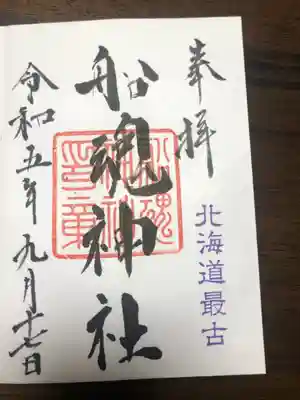 奉拝
北海道最古
船魂神社
令和五年九月十七日